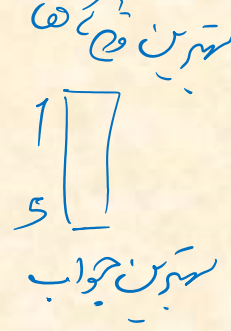 بهترین ویژگی ها
1
5
بهترین جواب